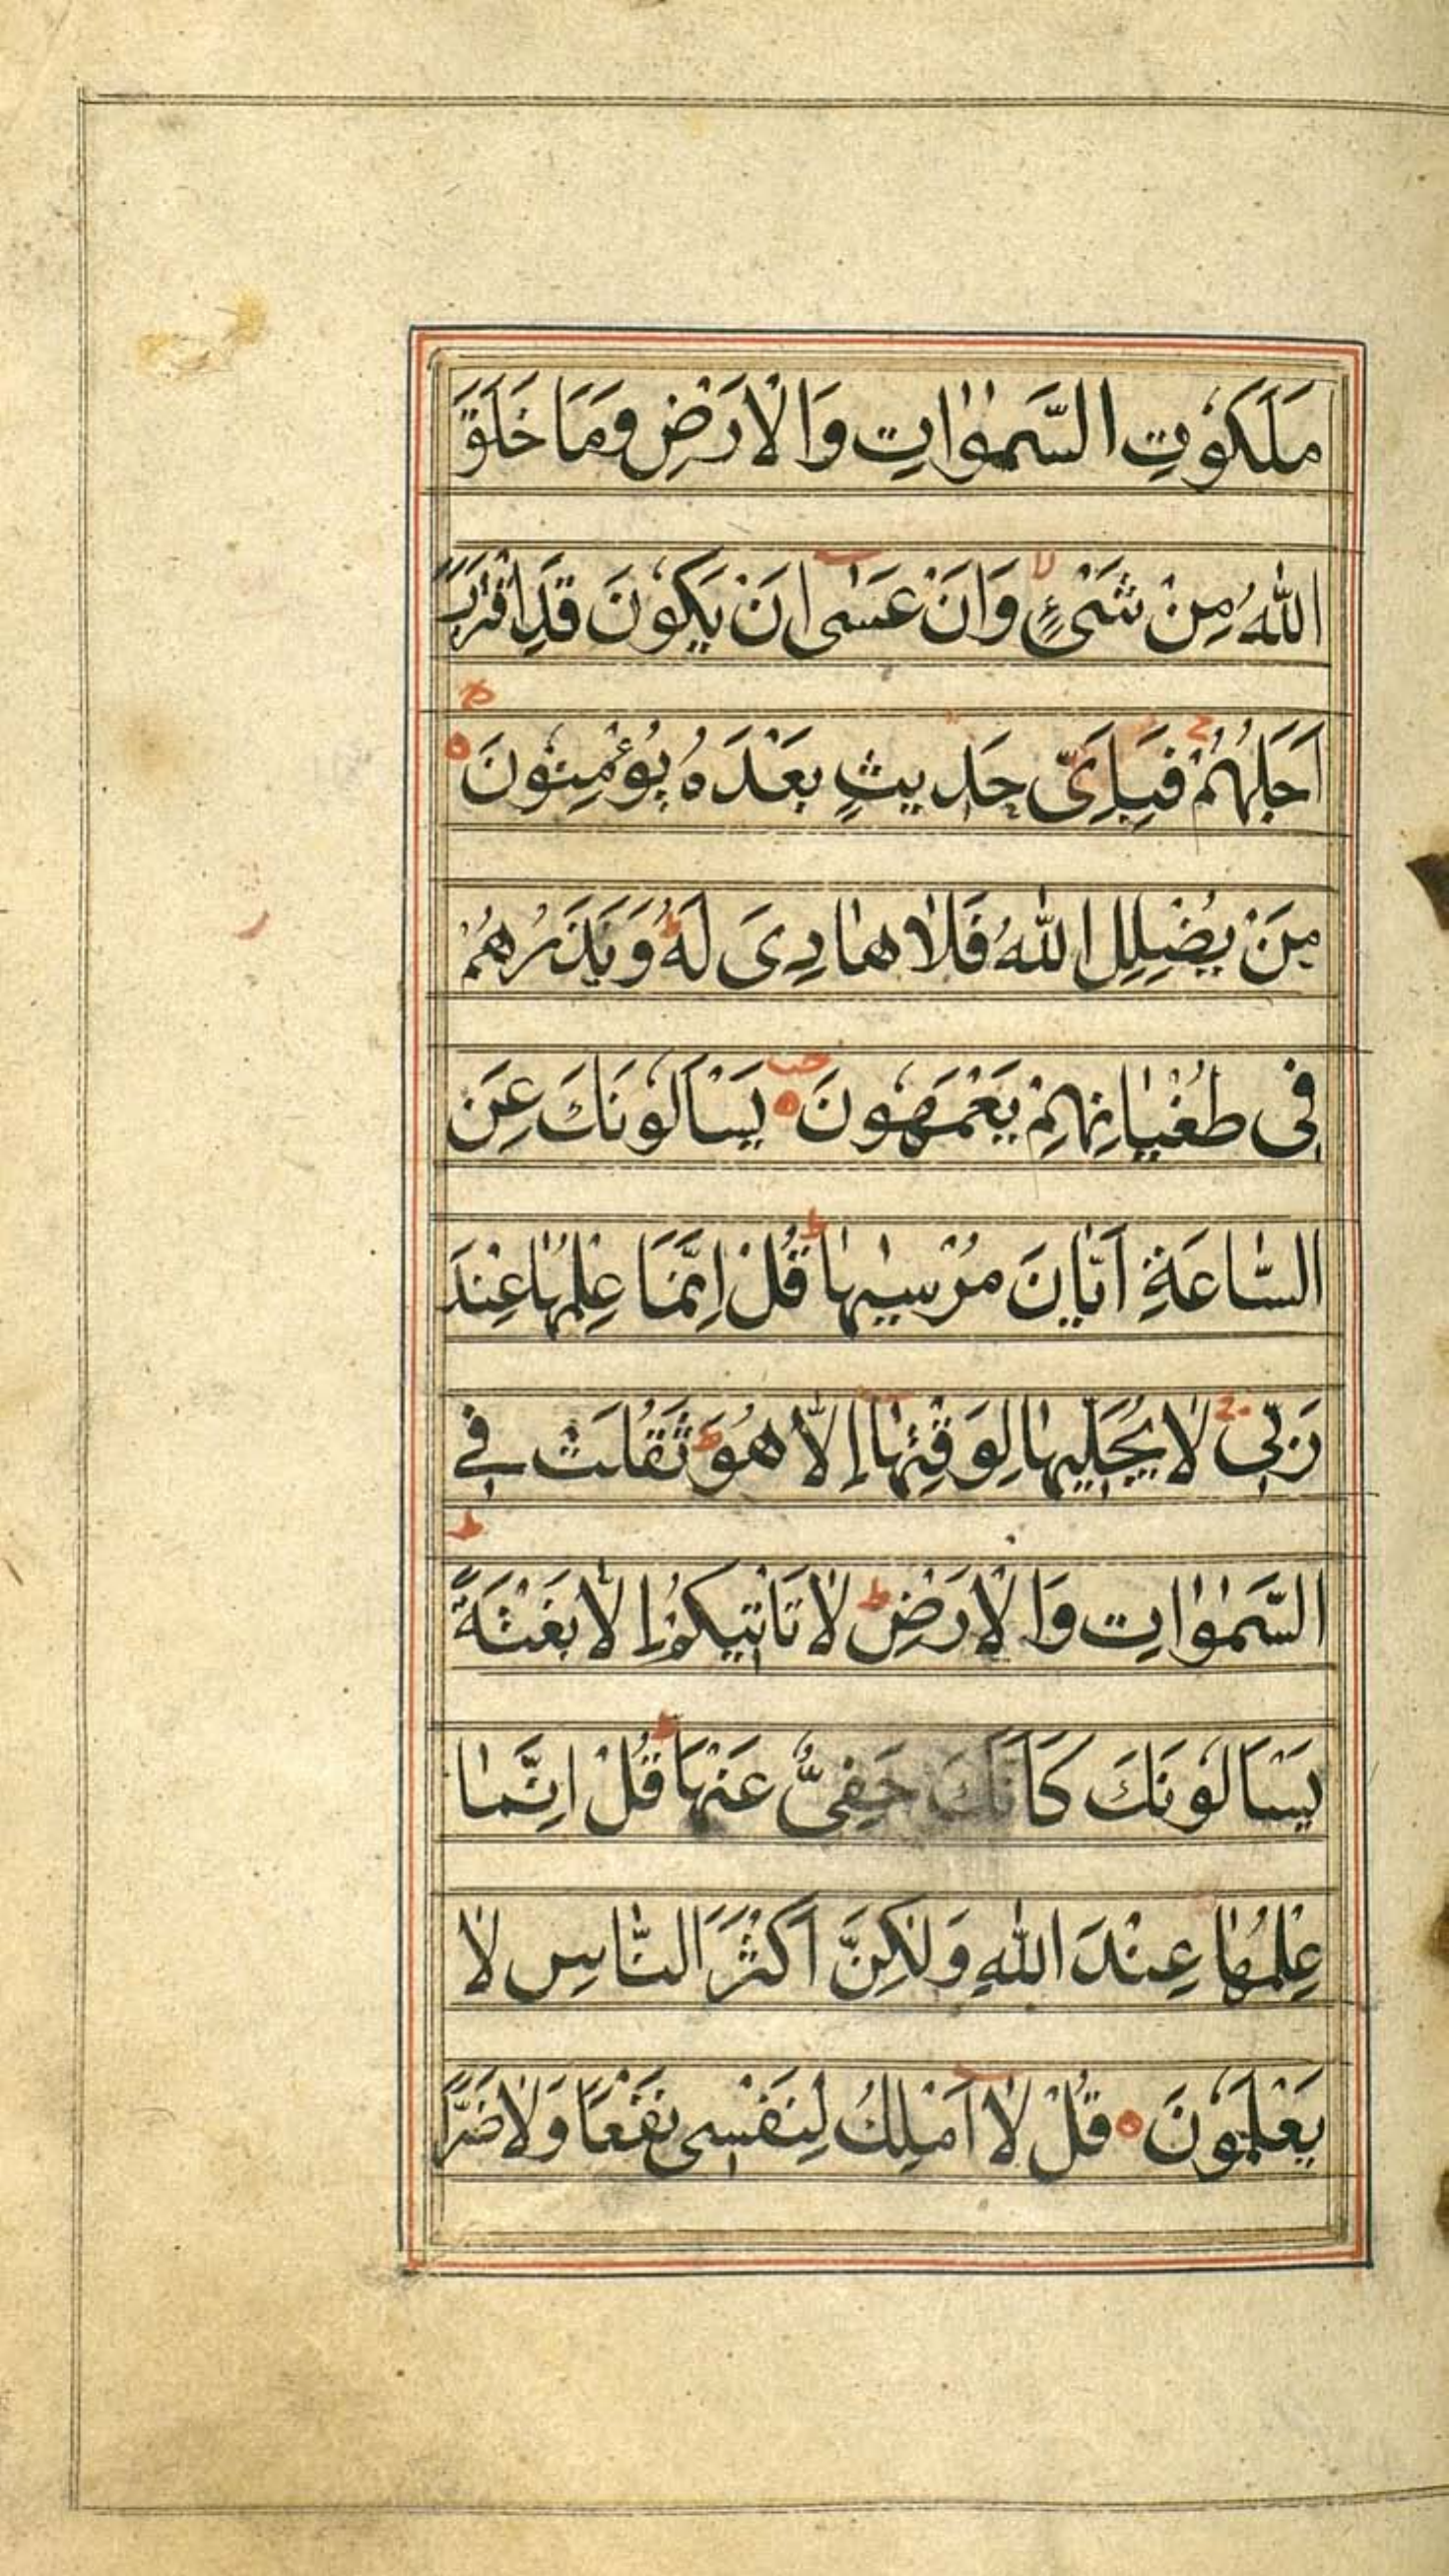 مَلَكُوتِ السَّمٰوٰاتِ وَالْاَرْضِ وَمَا خَلَقَ
اللّٰهُ مِنْ شَىْءٍ ۙ وَاَنْ عَسٰى اَنْ يَكُونَ قَدِ اقْتَرَبَ
اَجَلُهُمْ ۚ فَبِاَىِّ حَدِيثٍ بَعْدَهُ يُؤْمِنُونَ ۝
مَنْ يُضْلِلِ اللّٰهُ فَلَا هَادِىَ لَهُ ۭ وَيَذَرُهُمْ
فِى طُغْيَانِهِمْ يَعْمَهُونَ ۝ يَسْاَلُونَكَ عَنِ
السَّاعَةِ اَيَّانَ مُرْسٰيهَا ۭ قُلْ اِنَّمَا عِلْمُهَا عِنْدَ
رَبِّى ۚ لَا يُجَلِّيهَا لِوَقْتِهَا اِلَّا هُوَ ۭ ثَقُلَتْ فِى
السَّمٰوٰاتِ وَالْاَرْضِ ۭ لَا تَاْتِيكُمْ اِلَّا بَغْتَةً ۭ
يَسْاَلُونَكَ كَاَنَّكَ حَفِىٌّ عَنْهَا ۭ قُلْ اِنَّمَا
عِلْمُهَا عِنْدَ اللّٰهِ وَلٰكِنَّ اَكْثَرَ النَّاسِ لَا
يَعْلَمُونَ ۝ قُلْ لَا اَمْلِكُ لِنَفْسِى نَفْعًا وَلَا ضَرًّا